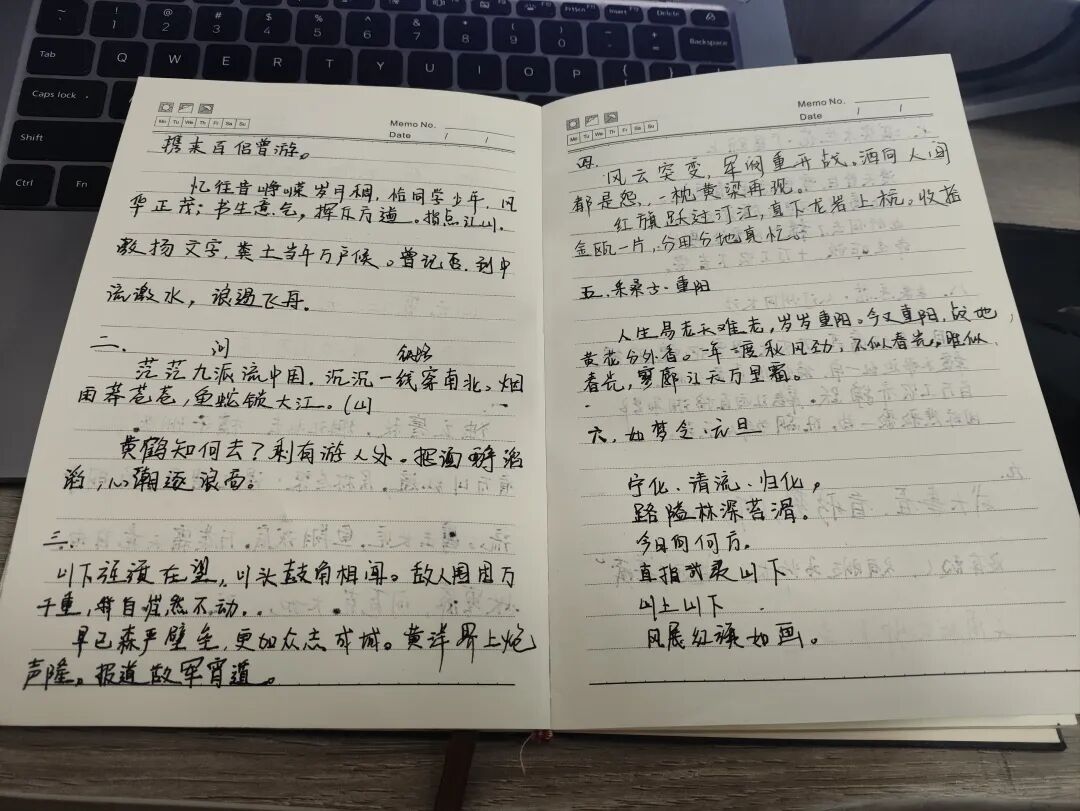 ~ ! @ # $ % ^ & * ( ) _ + Insert Delete
1 2 3 4 5 6 7 8 9 0 - = Backspace
Tab Q W E R T Y U I O P { }
Caps lock
Shift
Ctrl Fn
Memo No.
Mo Tu We Th Fr Sa Su
Date / /
携来百侣曾游。
忆往昔峥嵘岁月稠,恰同学少年,风
华正茂;书生意气,挥斥方遒。指点江山,
激扬文字,粪土当年万户侯。曾记否,到中
流激水,浪遏飞舟。
二、
茫茫九派流中国,沉沉一线穿南北。烟
雨莽苍苍,龟蛇锁大江。(山)
黄鹤知何去?剩有游人处。把酒酹滔
滔,心潮逐浪高。
三、
山下旌旗在望,山头鼓角相闻。敌人围困万
千重,我自岿然不动。
早已森严壁垒,更加众志成城。黄洋界上炮
声隆,报道敌军宵遁。
Memo No.
Mo Tu We Th Fr Sa Su
Date / /
四、
风云突变,军阀重开战。洒向人间
都是怨,一枕黄粱再现。
红旗跃过汀江,直下龙岩上杭。收拾
金瓯一片,分田分地真忙。
五、采桑子·重阳
人生易老天难老,岁岁重阳。今又重阳,战地
黄花分外香。一年一度秋风劲,不似春光。胜似
春光,寥廓江天万里霜。
六、如梦令·元旦
宁化、清流、归化,
路隘林深苔滑。
今日向何方,
直指武夷山下
山上山下
风展红旗如画。